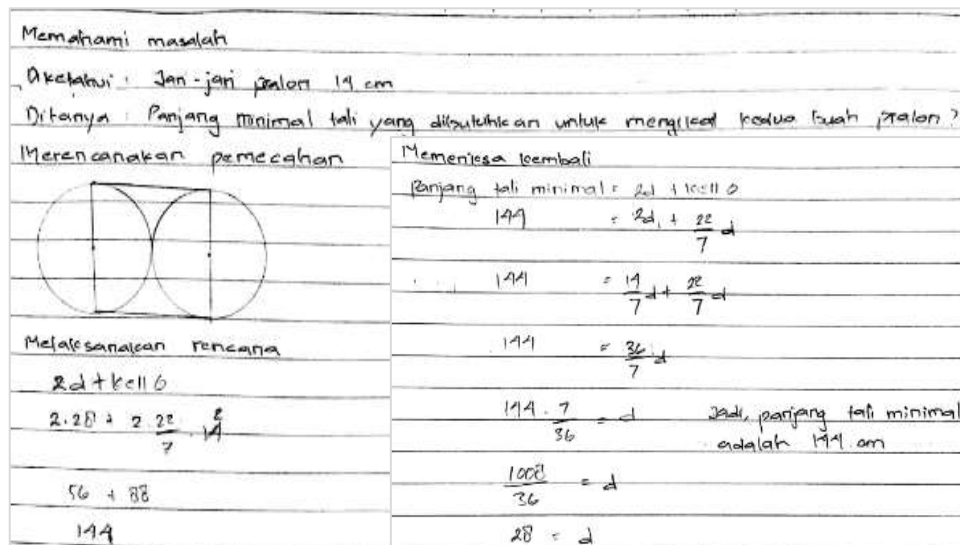 Memahami masalah
Diketahui : Jari-jari pralon 14 cm
Ditanya : Panjang minimal tali yang dibutuhkan untuk mengikat kedua buah pralon?
Merencanakan pemecahan
Melaksanakan rencana
2d + kell O
2.28 + 2.22/7.14 2
56 + 88
144
Memeriksa kembali
Panjang tali minimal = 2d + kell O
144 = 2d + 22/7 d
144 = 14/7 d + 22/7 d
144 = 36/7 d
144 . 7/36 = d
1008/36 = d
28 = d
Jadi, panjang tali minimal
adalah 144 cm